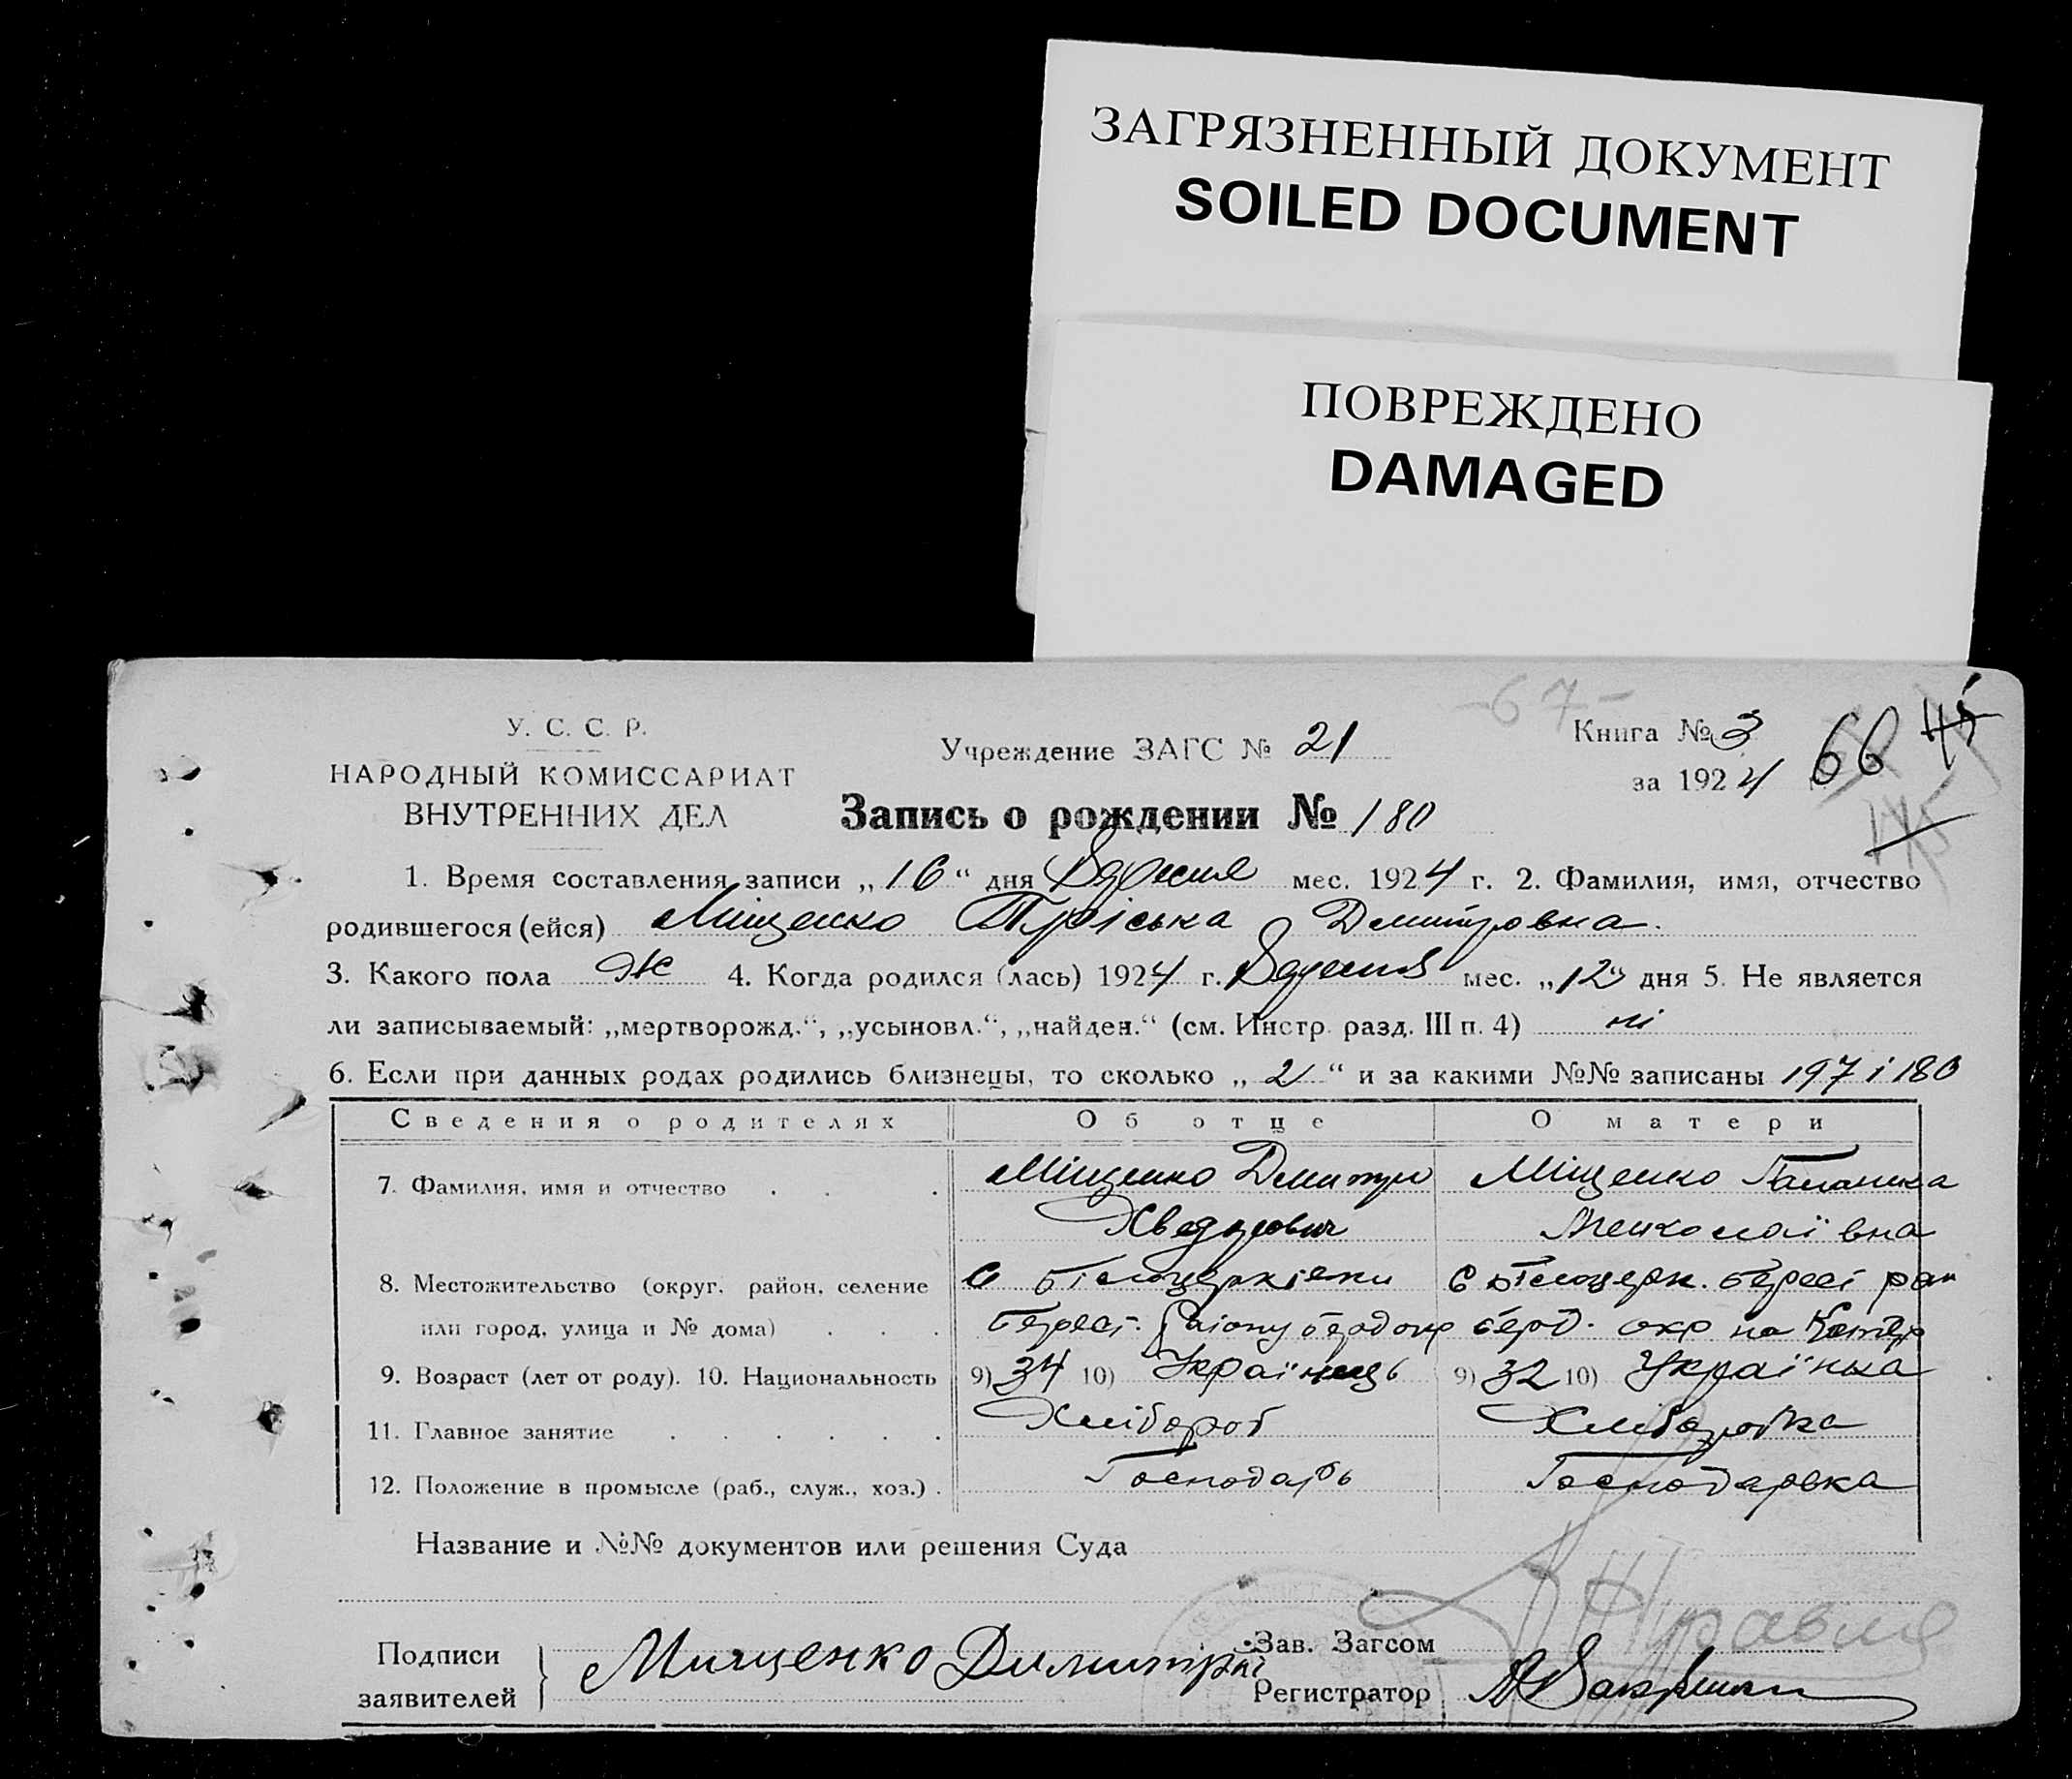 ЗАГРЯЗНЕННЫЙ ДОКУМЕНТ
SOILED DOCUMENT
ПОВРЕЖДЕНО
DAMAGED
-67-
У. С. С. Р.
НАРОДНЫЙ КОМИССАРИАТ
ВНУТРЕННИХ ДЕЛ
Учреждение ЗАГС № 21
Книга № 3
за 1924
66 45
145
Запись о рождении № 180
1. Время составления записи „16“ дня Вересня мес. 1924 г. 2. Фамилия, имя, отчество
родившегося (ейся) Міщенко Пріська Дмитровна.
3. Какого пола Ж 4. Когда родился (лась) 1924 г. Вересня мес. „12“ дня 5. Не является
ли записываемый: „мертворожд.“, „усыновл.“, „найден.“ (см. Инстр. разд. III п. 4) ні
6. Если при данных родах родились близнецы, то сколько „2“ и за какими №№ записаны 197 і 180
Сведения о родителях Об отце О матери
7. Фамилия, имя и отчество . . . Міщенко Дмитро Міщенко Паланика
Хведорович Миколаївна
8. Местожительство (округ, район, селение С Білоцерківки С Білоцерк. Берест рай
или город, улица и № дома) . . . Берест. Району Бердокр Берд. окр на
9. Возраст (лет от роду). 10. Национальность 9) 34 10) Українець 9) 32 10) Українка
11. Главное занятие . . . . . . Хлібороб Хліборобка
12. Положение в промысле (раб., служ., хоз.) . Господарь Господарка
Название и №№ документов или решения Суда
Подписи
заявителей
Мищенко Димитрій
Зав. Загсом
Регистратор